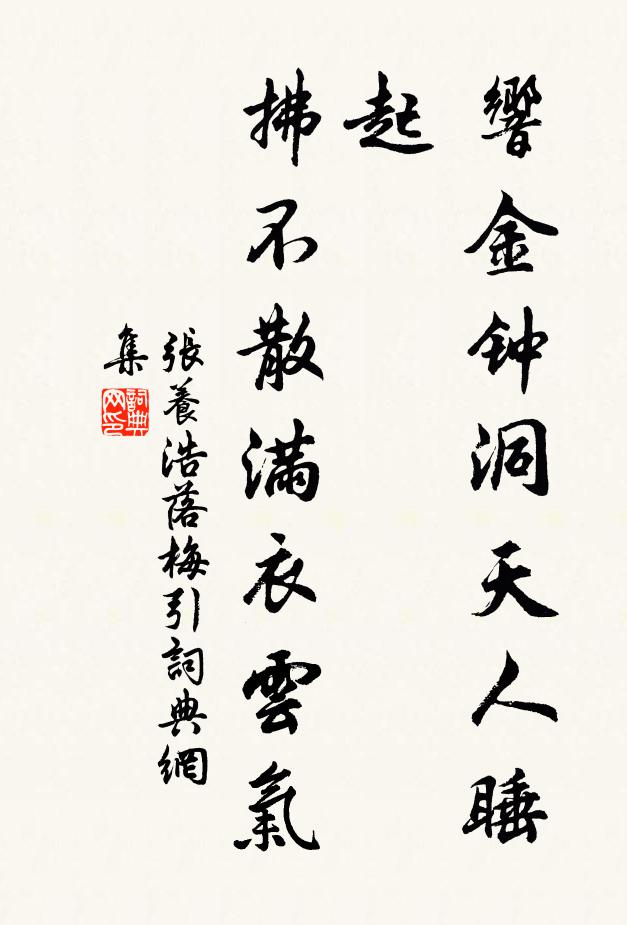 響金钟洞天人睡
起
拂不散滿衣雲氣
張養浩落梅引詞典網
集
詞典
网印